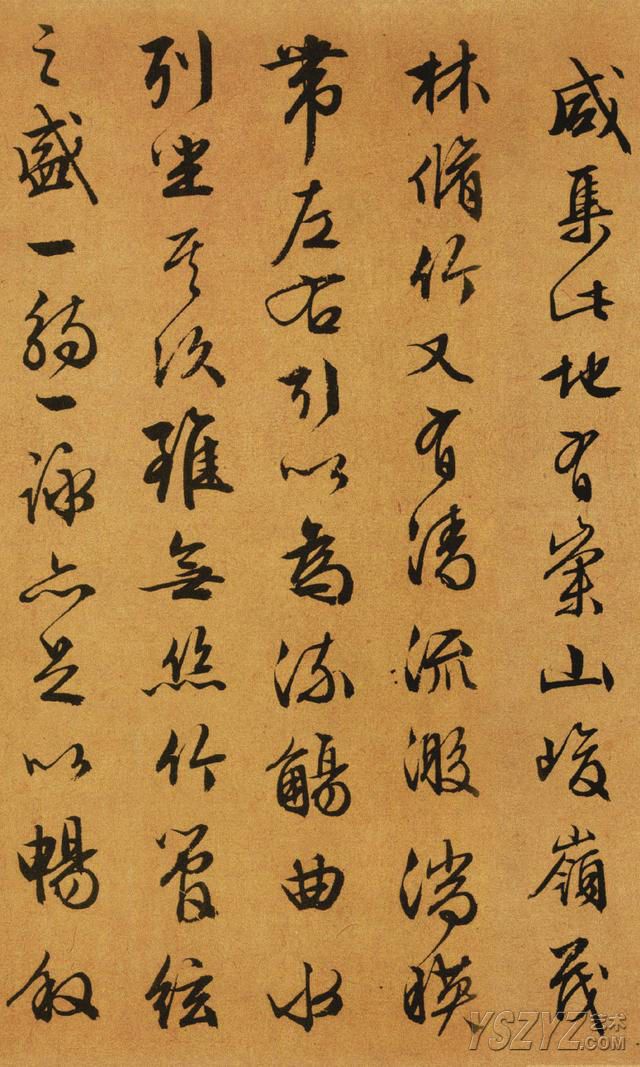 咸集此地有崇山峻嶺茂
林脩竹又有清流激湍暎
帶左右引以為流觴曲水
列坐其次雖無絲竹管絃
之盛一觴一詠亦足以暢敘
YSZYZ艺术
.COM